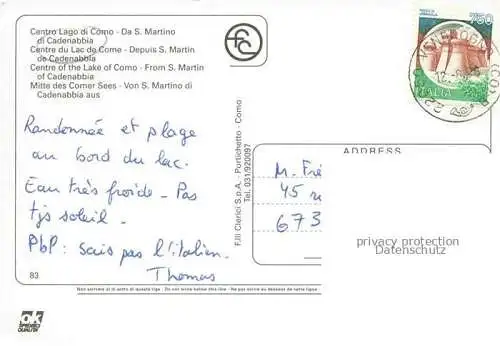 Centro Lago di Como - Da S. Martino
di Cadenabbia
Centre du Lac de Come - Depuis S. Martin
de Cadenabbia
Centre of the Lake of Como - From S. Martin
of Cadenabbia
Mitte des Comer Sees - Von S. Martino di
Cadenabbia aus
Randonnée et plage
au bord du lac.
Eau très froide - Pas
tjs soleil -
Pbl : sais pas l'italien.
Thomas
83
ok
F.lli Clerici S.p.A. - Portichetto - Como
Tel. 031/920097
750
ITALIA
ADDRESS
M. Fré
45
673
privacy protection
Datenschutz
Non scrivere al di sotto di questa riga - Do not write below this line - Ne pas écrire au dessous de notre ligne